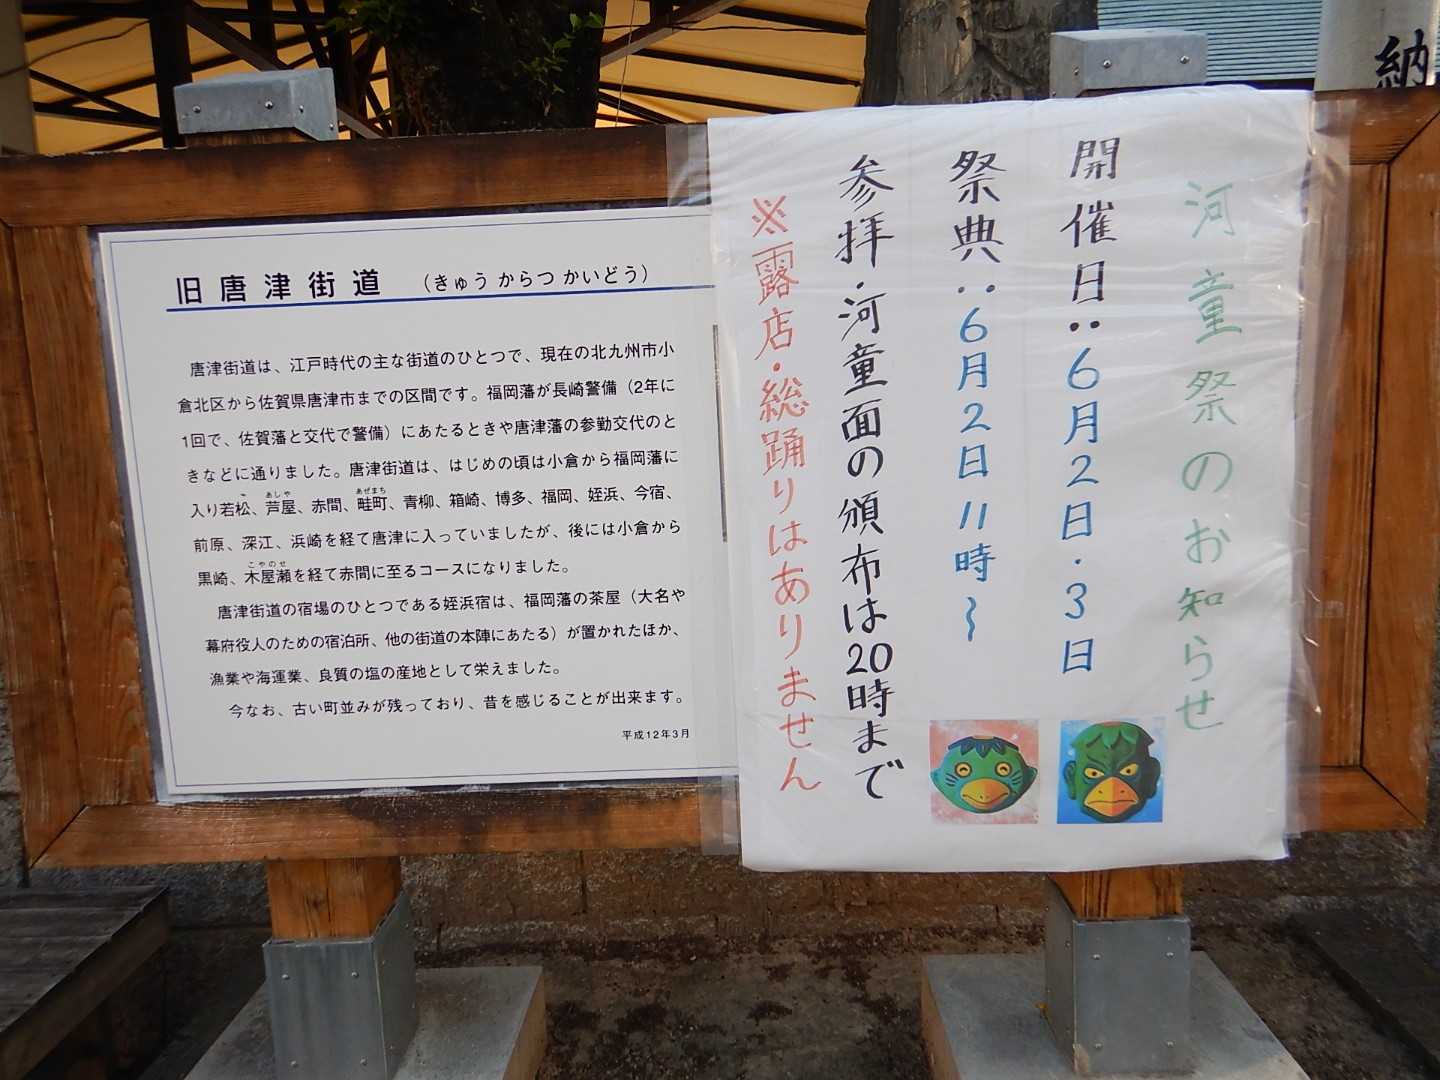 旧唐津街道 （きゅう からつ かいどう）
唐津街道は、江戸時代の主な街道のひとつで、現在の北九州市小
倉北区から佐賀県唐津市までの区間です。福岡藩が長崎警備（2年に
1回で、佐賀藩と交代で警備）にあたるときや唐津藩の参勤交代のと
きなどに通りました。唐津街道は、はじめの頃は小倉から福岡藩に
入り若松、芦屋、赤間、畦町、青柳、箱崎、博多、福岡、姪浜、今宿、
あしや
あぜまち
前原、深江、浜崎を経て唐津に入っていましたが、後には小倉から
黒崎、木屋瀬を経て赤間に至るコースになりました。
こやのせ
唐津街道の宿場のひとつである姪浜宿は、福岡藩の茶屋（大名や
幕府役人のための宿泊所、他の街道の本陣にあたる）が置かれたほか、
漁業や海運業、良質の塩の産地として栄えました。
今なお、古い町並みが残っており、昔を感じることが出来ます。
平成12年3月
河童祭のお知らせ
開催日：6月2日・3日
祭典：6月2日11時～
参拝・河童面の頒布は20時まで
※露店・総踊りはありません
納